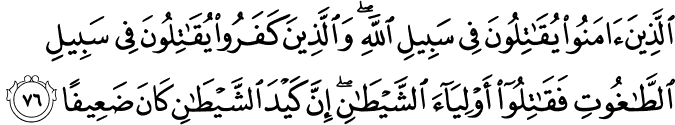 ٱلَّذِينَ ءَامَنُوا۟ يُقَـٰتِلُونَ فِى سَبِيلِ ٱللَّهِ ۖ وَٱلَّذِينَ كَفَرُوا۟ يُقَـٰتِلُونَ فِى سَبِيلِ
ٱلطَّـٰغُوتِ فَقَـٰتِلُوٓا۟ أَوْلِيَآءَ ٱلشَّيْطَـٰنِ ۖ إِنَّ كَيْدَ ٱلشَّيْطَـٰنِ كَانَ ضَعِيفًا ٧٦